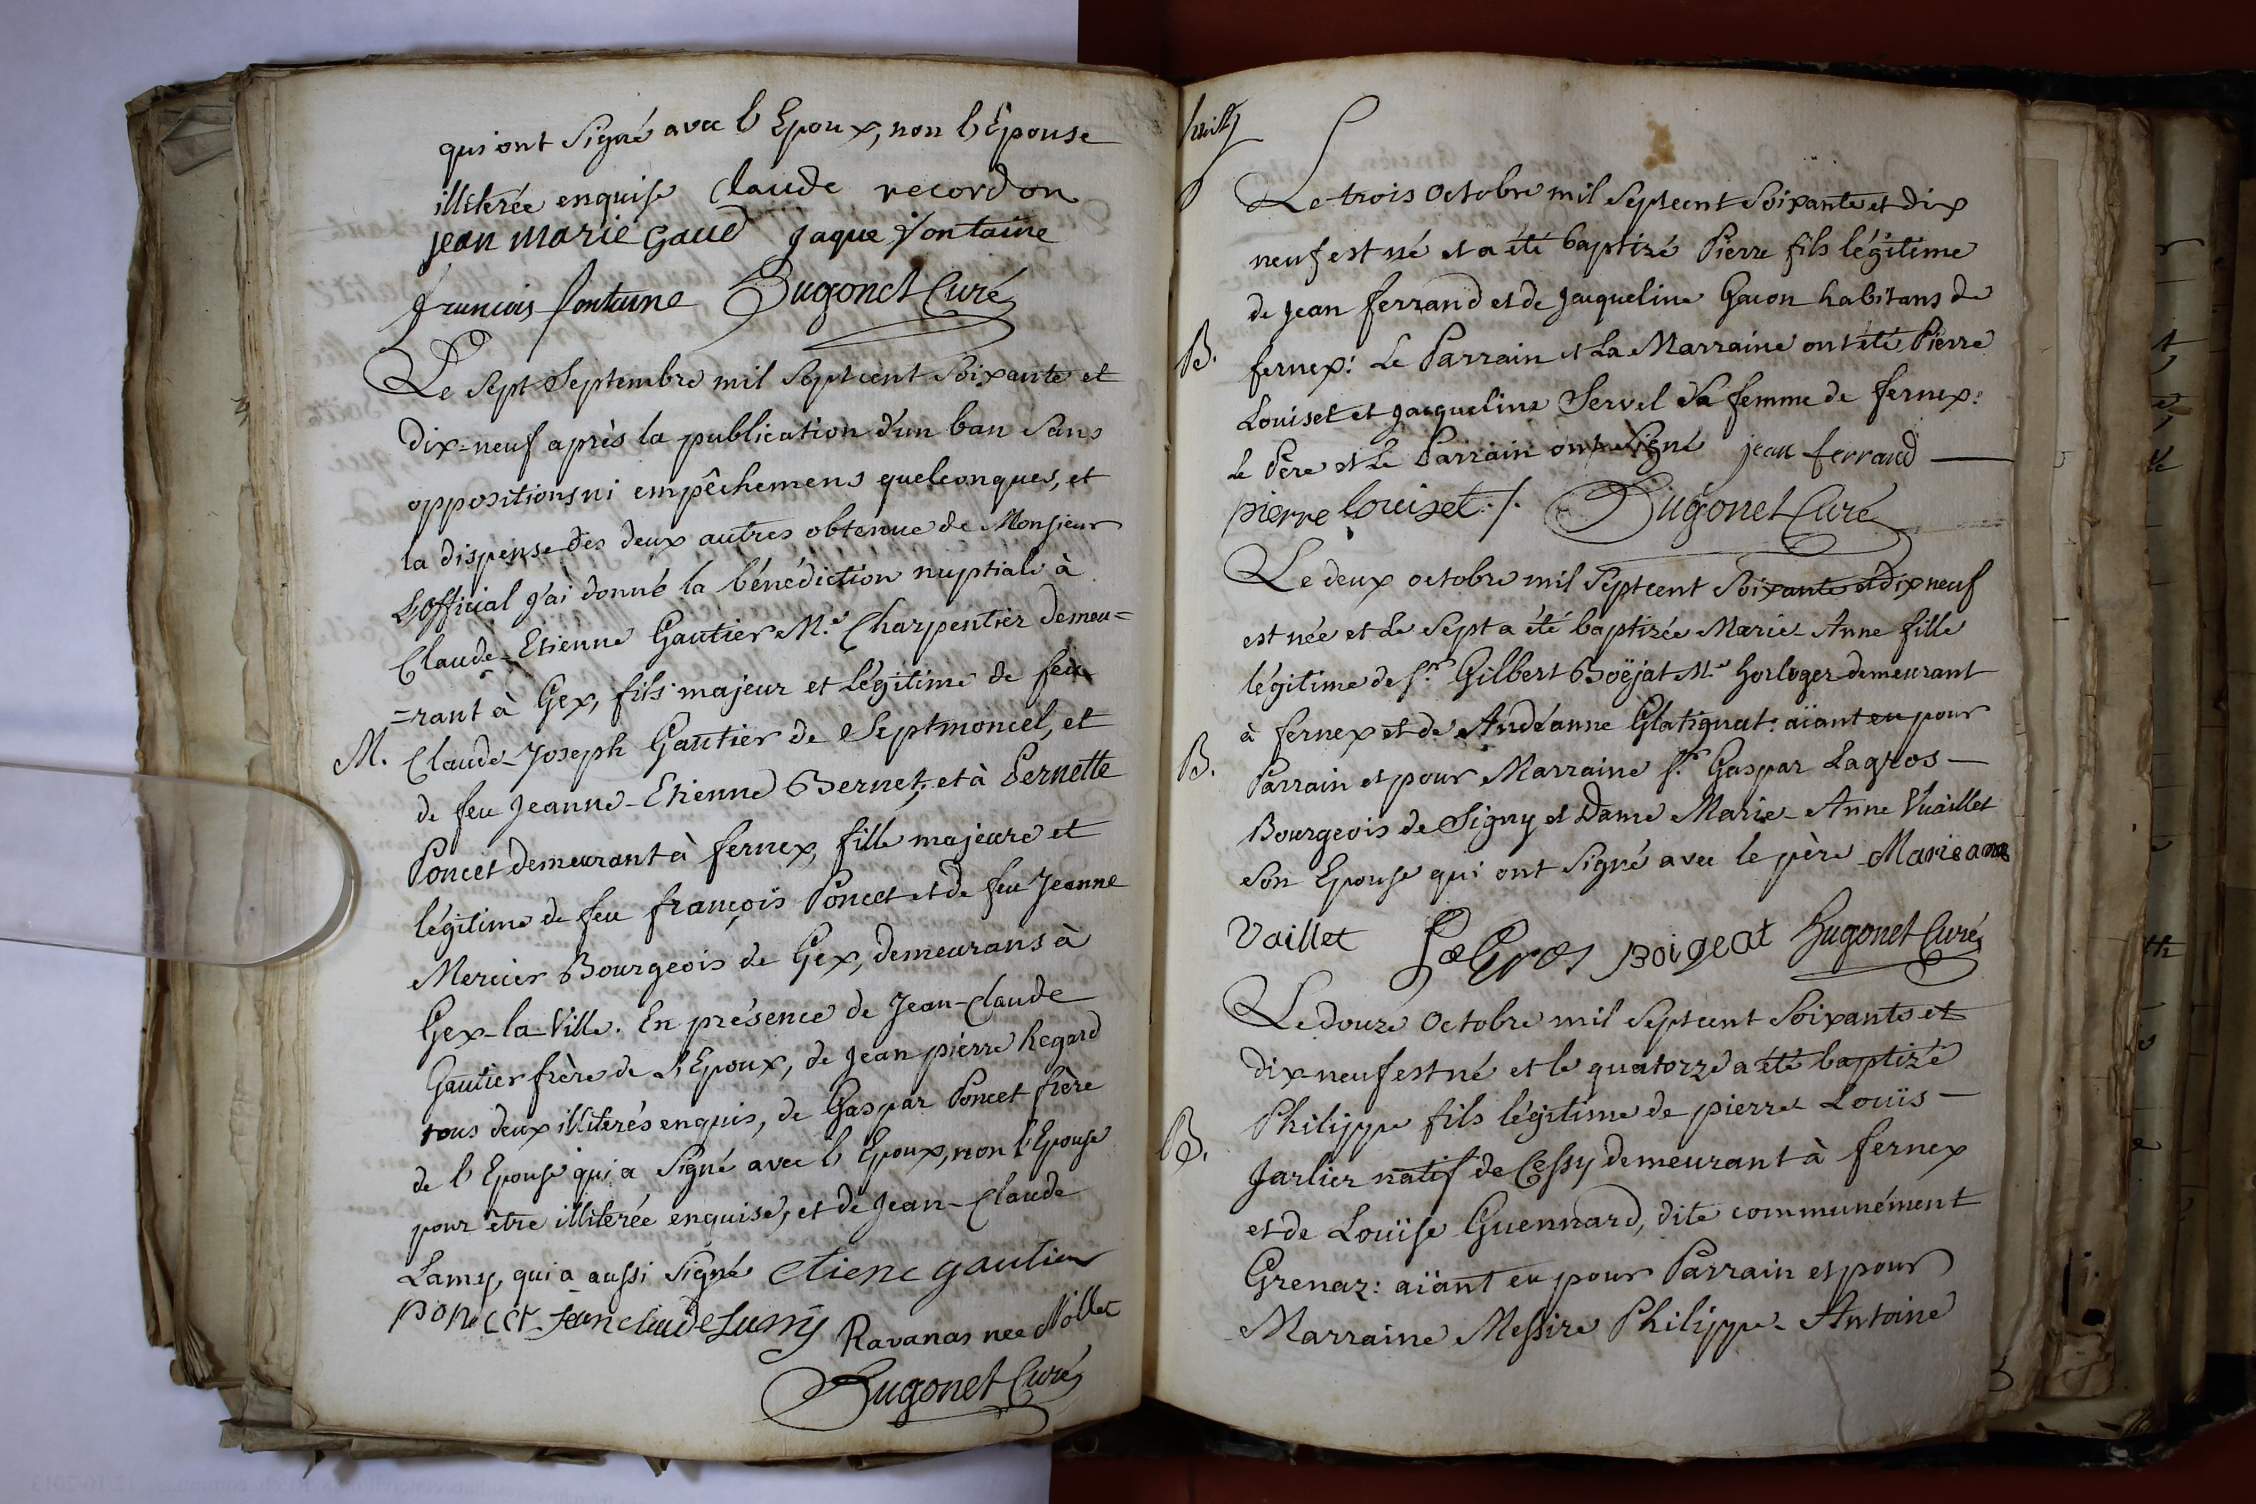 qui ont signé avec l'Epoux, non l'Epouse
illiterée enquise Claude recordon
jean marie gaud jaque fontaine
francois fontaine Hugonet Curé
Le sept Septembre mil Septcent Soixante et
dix-neuf après la publication d'un ban Sans
oppositions ni empêchemens quelconques, et
la dispense des deux autres obtenue de Monsieur
L'Official j'ai donné la bénédiction nuptiale à
Claude-Etienne Gautier M.e Charpentier demeu=
=rant à Gex, fils majeur et légitime de feu
M. Claude-Joseph Gautier de Septmoncel, et
de feu Jeanne-Etienne Bernet; et à Pernette
Poncet demeurant à fernex, fille majeure et
légitime de feu françois Poncet et de feu Jeanne
Mercier Bourgeois de Gex, demeurans à
Gex-la-Ville. En présence de Jean-Claude
Gautier frère de l'Epoux, de Jean pierre Regard
tous deux illiterés enquis, de Gaspar Poncet frère
de l'Epouse qui a Signé avec l'Epoux, non l'Epouse
pour être illiterée enquise, et de Jean-Claude
Lamy, qui a aussi signé etiene gautier
poncet jean claude Lamy Ravanas nee Nollet
Hugonet Curé
huit
Le trois Octobre mil Septcent Soixante et dix
neuf est né et a été baptizé Pierre fils légitime
de Jean ferrand et de Jacqueline Gacon habitans de
B. fernex: Le Parrain et La Marraine ont été Pierre
Louiset et Jacqueline Servel Sa femme de fernex:
Le Père et Le Parrain ont Signé jean ferrand
pierre louiset ./. Hugonet Curé
Le deux octobre mil Septcent Soixante et dix neuf
est née et Le Sept a été baptizée Marie-Anne fille
légitime de S.r Gilbert Boëjat M.e horloger demeurant
à fernex et de Andéanne Glatignat: aïant eu pour
B. Parrain et pour Marraine S.r Gaspar Lagros
Bourgeois de Signy et Dame Marie-Anne Vuaillet
son Epouse qui ont Signé avec le père Marie anne
Vaillet LaGros Boigeat Hugonet Curé
Le douze Octobre mil Septcent Soixante et
dix neuf est né et le quatorze a été baptizé
Philippe fils légitime de pierre Louïs
B. Jarlier natif de Cessy demeurant à fernex
et de Louïse Guennard, dite communément
Grenaz: aïant eu pour Parrain et pour
Marraine Messire Philippe-Antoine